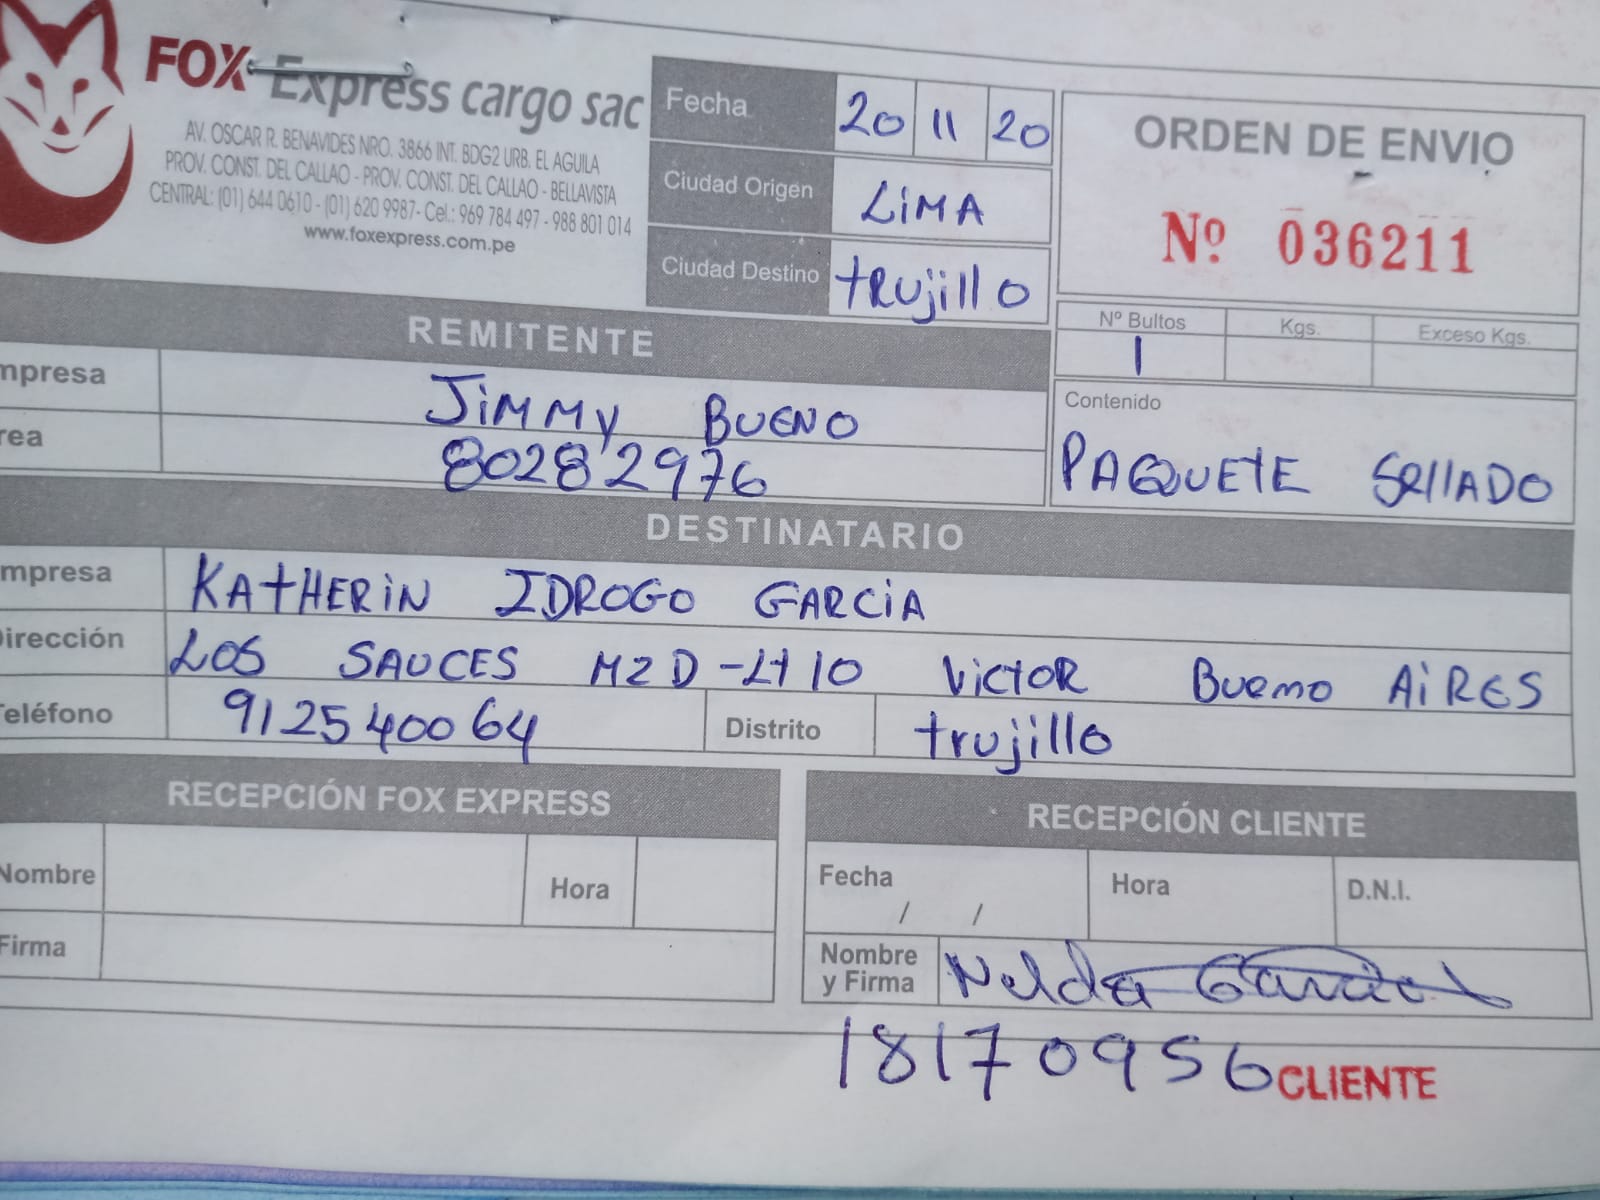 FOX Express cargo sac
AV. OSCAR R. BENAVIDES NRO. 3866 INT. BDG2 URB. EL AGUILA
PROV. CONST. DEL CALLAO - PROV. CONST. DEL CALLAO - BELLAVISTA
CENTRAL: (01) 644 0610 - (01) 620 9987- Cel.: 969 784 497 - 988 801 014
www.foxexpress.com.pe
Fecha 20 11 20
Ciudad Origen LiMA
Ciudad Destino tRujillo
ORDEN DE ENVIO
Nº 036211
Nº Bultos Kgs. Exceso Kgs.
1
Contenido
PAQUETE SEllADO
REMITENTE
mpresa JiMMy BUENO
rea 80282976
DESTINATARIO
mpresa KAtHERiN IDROGO GARCiA
Dirección LOS SAUCES MZ D -Lt 10 VictOR Bueno AiRES
Teléfono 912540064 Distrito trujillo
RECEPCIÓN FOX EXPRESS
Nombre Hora
Firma
RECEPCIÓN CLIENTE
Fecha / / Hora D.N.I.
Nombre y Firma Nelda Garcia
18170956
CLIENTE